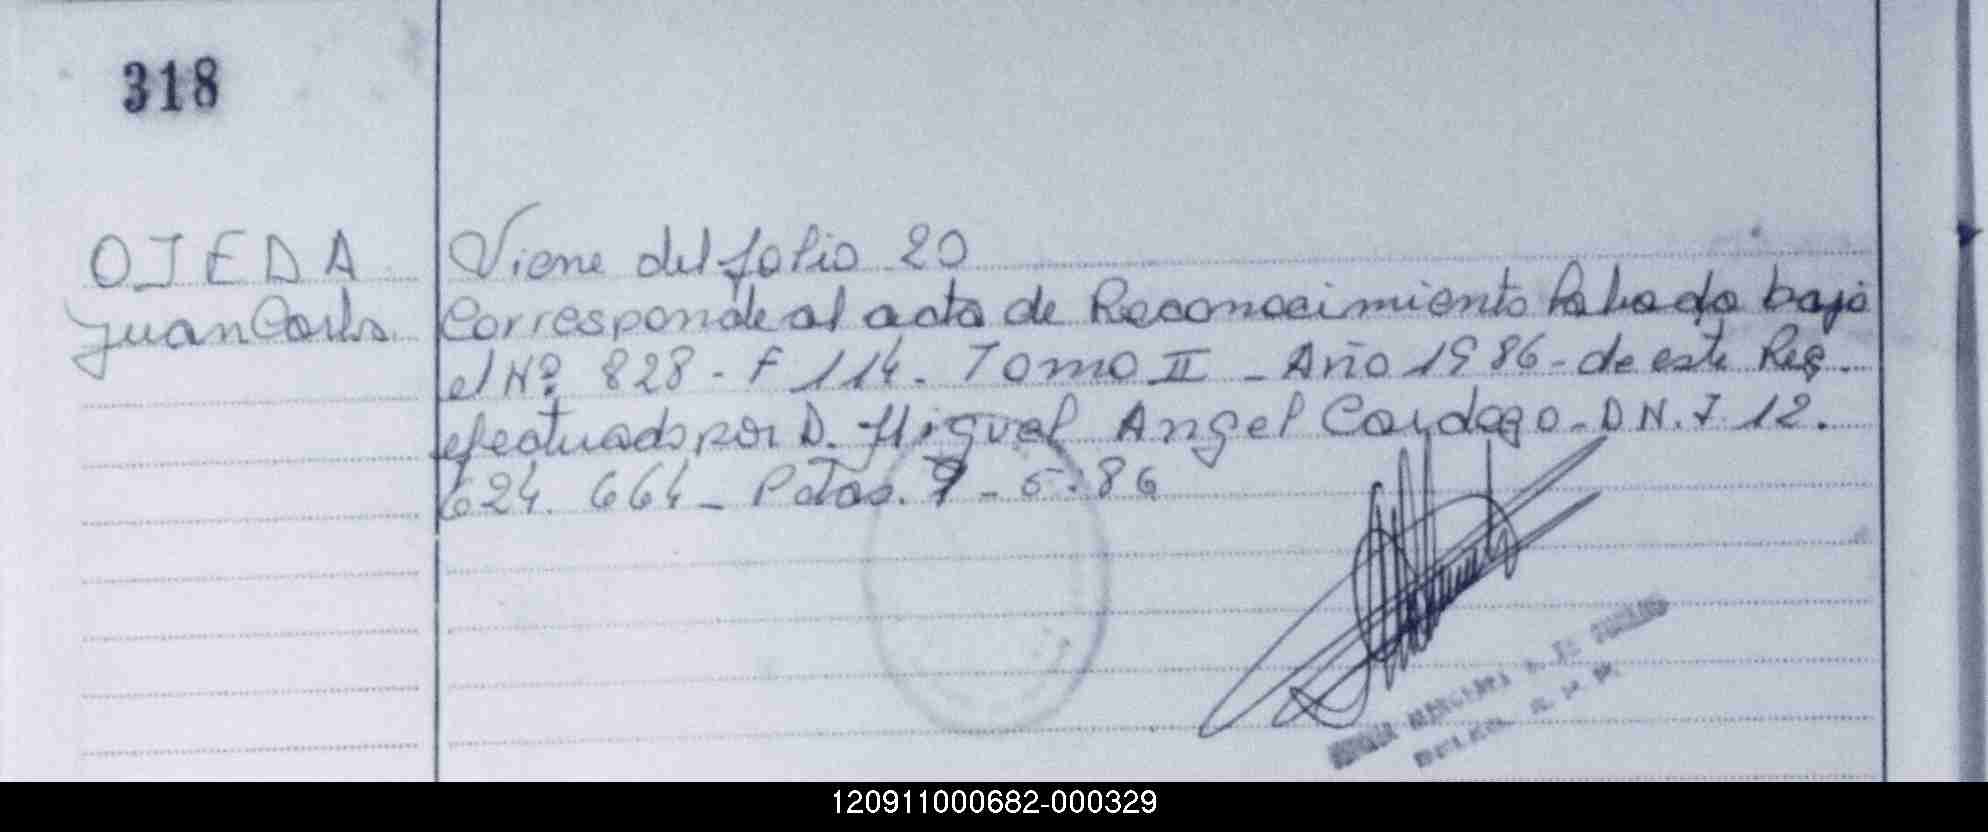 318
OJEDA
Juan Carlos
Viene del folio 20
Corresponde al acta de Reconocimiento labrada bajo
el Nº 828 - F 114 - Tomo II - Año 1986 - de este Reg.
efectuado por D. Miguel Angel Cardozo - D N. I 12.
624. 664 - Pdas. 9 - 5 - 86
120911000682-000329